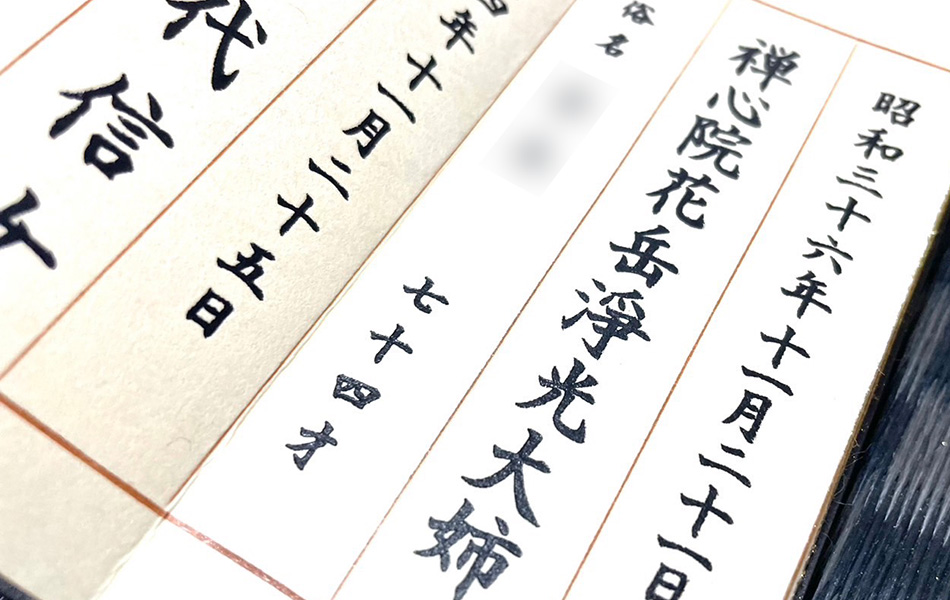 昭和三十六年十一月二十一日
禅心院花岳淨光大姉
俗名
七十四才
年十一月二十五日
代信